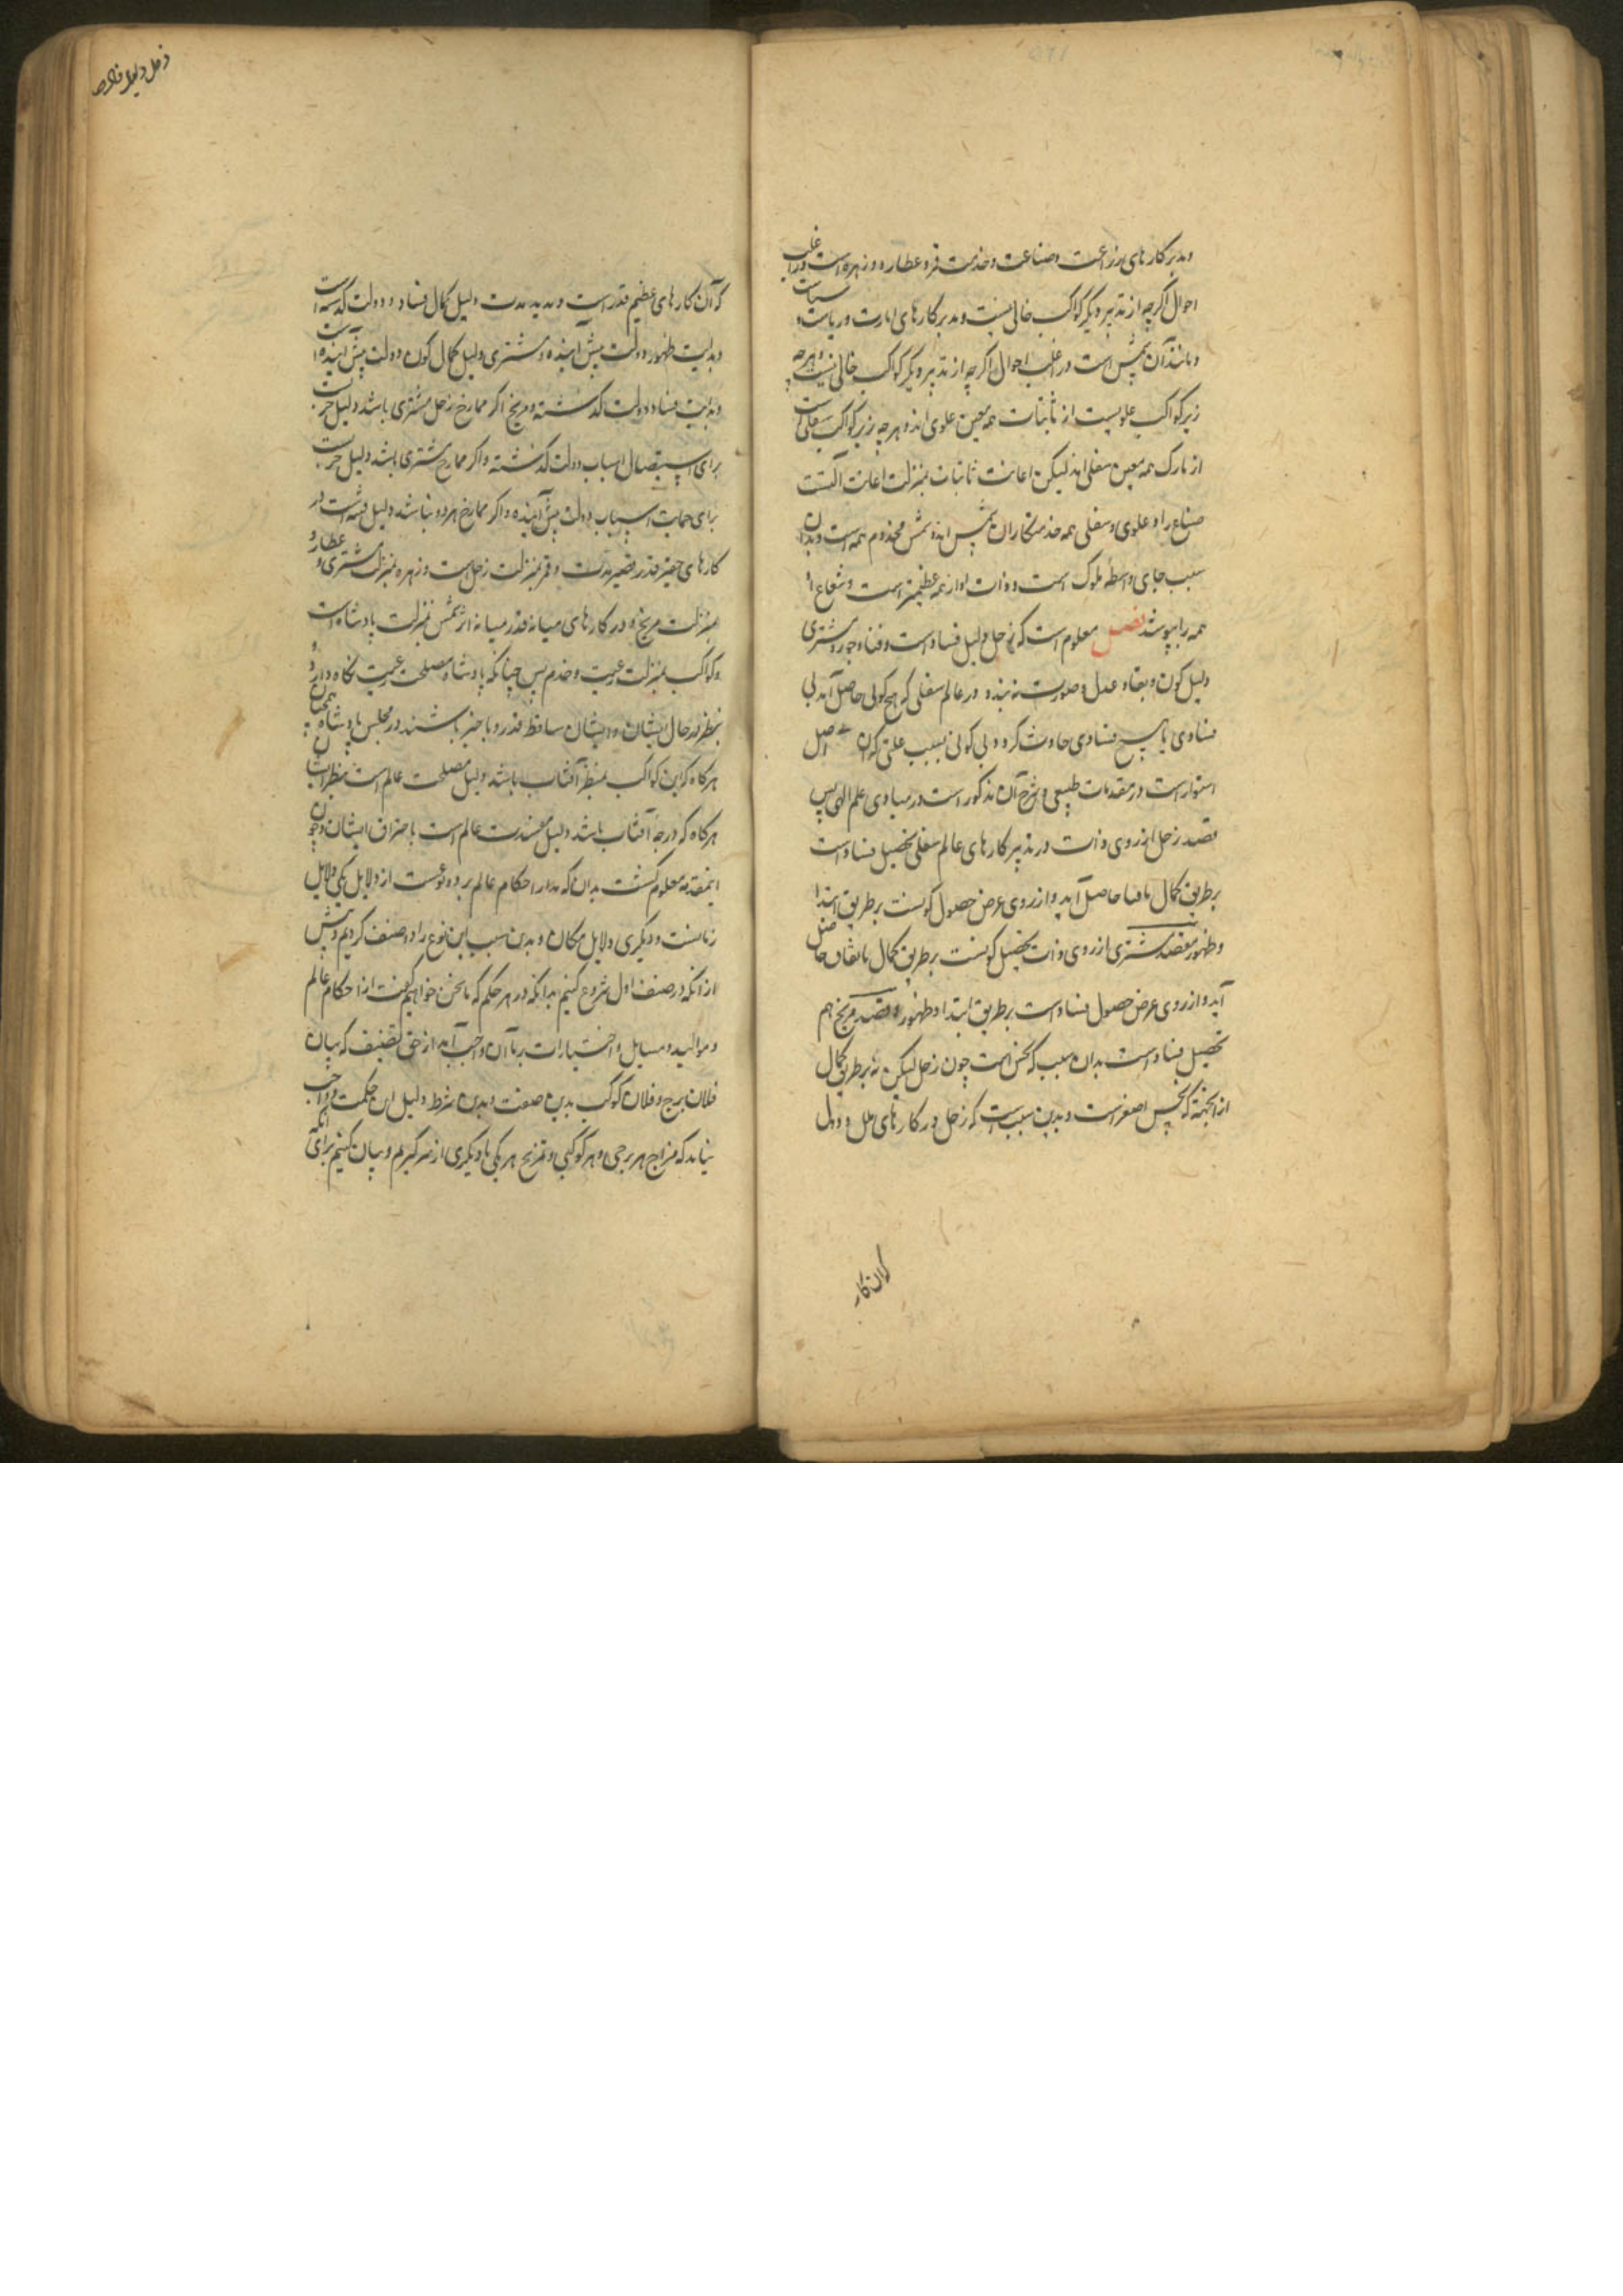 و مدبر کارهای زراعت و صناعت و خدمت قمر و عطارد و زهره است و در اغلب
احوال اکرچه از تدبیر دیکر کواکب خالی نیست و مدبر کارهای امارت و ریاست و سیاست
و مانند آن شمس است و در اغلب احوال اکرچه از تدبیر دیکر کواکب خالی نیست و هرچه
زبر کواکب علویست از ثابتات همه معین علوی اند و هرچه زیر کواکب سفلی است
از تارک همه معین سفلی اند لیکن اعانت ثابتات بمنزلت اعانت آلتست
صناع را و علوی و سفلی همه خدمتکاران شمس اند و شمس مخدوم همه است و بدان
سبب جای واسطه ملوک است و ذات او از همه عظیمتر است و شعاع او
همه را بپوشد فصل معلوم است که زحل دلیل فساد است و فنا و جور و مشتری
دلیل کون و بقا و عدل و صورت نه بندد در عالم سفلی که هیچ کونی حاصل آید بی
فسادی یا هیچ فسادی حادث کردد بی کونی بسبب علتی کزان اصل
استوار است در مقدمات طبیعی و شرح آن مذکور است در مبادی علم الهی پس
قصد زحل از روی ذات در تدبیر کارهای عالم سفلی تحصیل فساد است
بر طریق کمال تا فنا حاصل آید و از روی عرض حصول کونست بر طریق ابتدا
و ظهور مقصد مشتری از روی ذات تحصیل کونست بر طریق کمال تا بقا حاصل
آید و از روی عرض حصول فساد است بر طریق ابتدا و ظهور و قصد مریخ هم
تحصیل فساد است بدان سبب که نحس است چون زحل لیکن نه بر طریق کمال
از انجهة که نحس اصغر است و بدین سبب است که زحل در کارهای ملل و دول
که آن کارهای عظیم قدر است و مدید مدت دلیل کمال فساد و دولت کذشته است
و بدایت ظهور دولت پیش آینده و مشتری دلیل کمال کون دولت پیش آینده است
و بدایت فساد دولت کذشته و مریخ اکر ممازج زحل مشتری باشد دلیل حربست
برای استیصال اسباب دولت کذشته و اکر ممازج مشتری باشد دلیل حربست
برای حمایت اسباب دولت پیش آینده و اکر ممازج هر دو نباشد دلیل فتنه است در
کارهای حقیر قدر قصیر مدت و قمر بمنزلت زحل است و زهره بمنزلت مشتری و عطارد
بمنزلت مریخ و در کارهای میانه قدر میانه اثر شمس بمنزلت پادشاه است
و کواکب بمنزلت رعیت و خدم پس چنانکه پادشاه مصلحت رعیت نکاه دارد
بنظر در حال ایشان و ایشان ساقط قدر و ناچیز باشند در مجلس پادشاه همچنان
هرکاه که این کواکب بنظر آفتاب باشد دلیل مصلحت عالم است بنظر ایشان
هرکاه که درجه آفتاب باشد دلیل مفسدت عالم است باحتراق ایشان و چون
اینمقدمه معلوم کشت بدان که مدار احکام عالم بر دو نوعست از دلایل یکی دلایل
زمانست و دیکری دلایل مکان و بدین سبب این نوع را دو صنف کردیم و پیش
از انکه در صنف اول شروع کنیم بدانکه در هر حکم که ما سخن خواهیم کفت از احکام عالم
و موالید و مسایل و اختیارات بر ما آن واجب آید از حق تصنیف که بیان
فلان برج و فلان کوکب بدین صفت و بدین شرط دلیل این حکمت و واجب
نیاید که مزاج هر برجی و هر کوکبی و تمزیج هر یکی با دیکری از سر کیریم و بیان کنیم برای آنکه